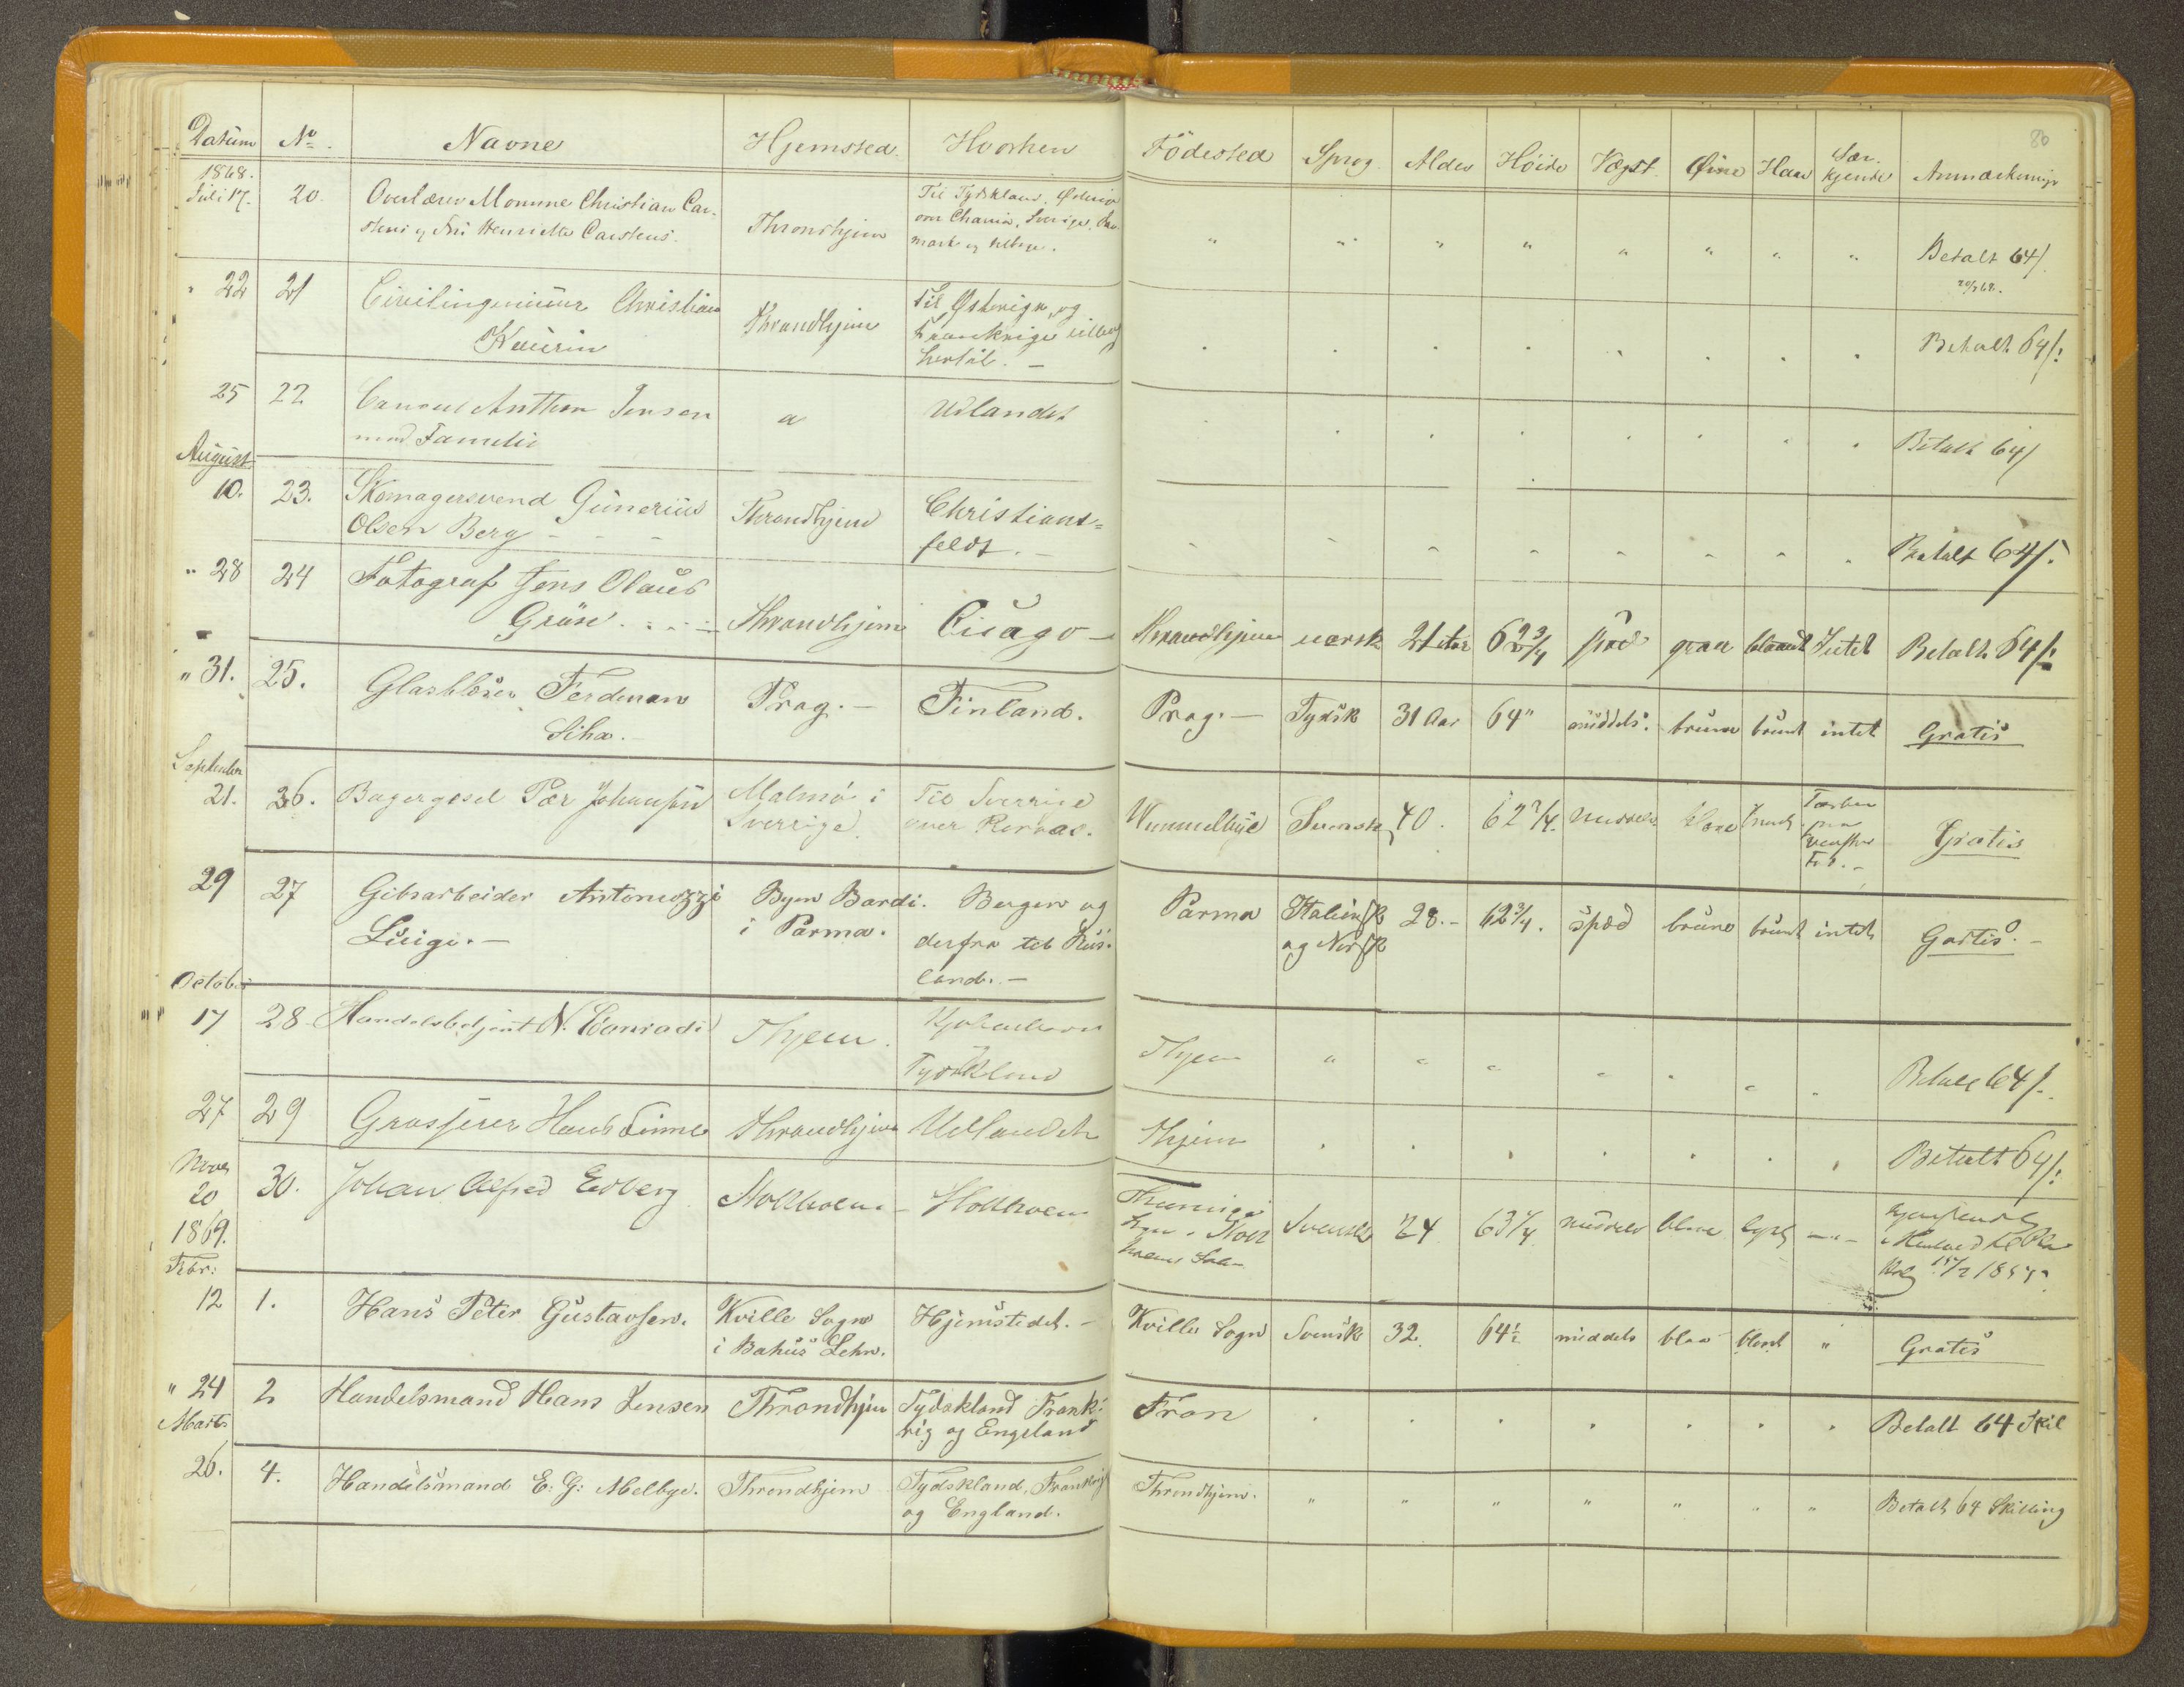 Datum No Navne Hjemsted Hvorhen Födested Sprog Alder Höide Væxt Øine Haar Sær-kjende Anmærkninger
80
1868.
Juli 17. 20. Overlærer Momme Christian Car-
stens og Fru Henriette Carstens. Throndhjem
Til Tydskland, Østerrig
over Chania, Sverige, Dan-
mark og tilbage.
" " " " " " " " Betalt 64/
22 21 Civilingeniuur Christian
Kaurin Throndhjem
Til Østerige, og
Frankrige tilbage
hertil. —
Betalt 64/:
25 22 Consul Anthon Jensen
med Familie " Udlandet Betalt 64/
August
10. 23. Skomagersvend Gunerius
Olsen Berg - - - Throndhjem Christians=
feldt. — Betalt 64/:
" 28 24 Fotograf Jens Olaus
Grüse. Throndhjem Cicago — Throndhjem norsk 21 Aar 62 3/4 spæd graa blaandt Intet Betalt 64/:
" 31. 25. Glasblæser Ferdinan
Siha. — Prag. — Finland. Prag. — Tydsk 31 Aar 64" middels. brune brunt intet Gratis
September
21. 26. Bagergesel Pær Johansen Malmö i
Sverrige.
Til Sverrige
over Röraas.
Wummelbye Svensk 40. 62 1/4. middels blaae brunt
Gratis
29 27 Gibsarbeider Antoniozzi
Luigi. — Byen Bardi.
i Parma. Bergen og
derfra til Rus-
land. — Parma Italiensk
og Norsk 28. — 62 3/4. spæd brune brunt intet Gartis. —
October
17 28. Handelsbetjent N. Conradi Thjem. Kjøbenhavn
Tydskland Thjem " Betalt 64/.
27 29 Grosserer Hans Finne Throndhjem Udlandet Thjem Betalt 64/:
Novbr
20 30. Johan Alfred Edberg Stokholm — Stokholm
Svensk 24 63 1/4 middels blaae lyst — " —
1869.
Febr:
12 1. Hans Peter Gustavsen. Kville Sogn
i Bahus Lehn. Hjemstedet. — Kville Sogn Svensk 32. 64 1/2 middels blaa blond " Gratis
" 24 2 Handelsmand Hans Jensen Throndhjem Tydskland Frank-
rig og Engeland Fron Betalt 64 Skil
Marts
26. 4. Handelsmand E: G: Melbye. Throndhjem Tydskland, Frankrig
og England. Throndhjem. " " " " " " " Betalt 64 Skilling